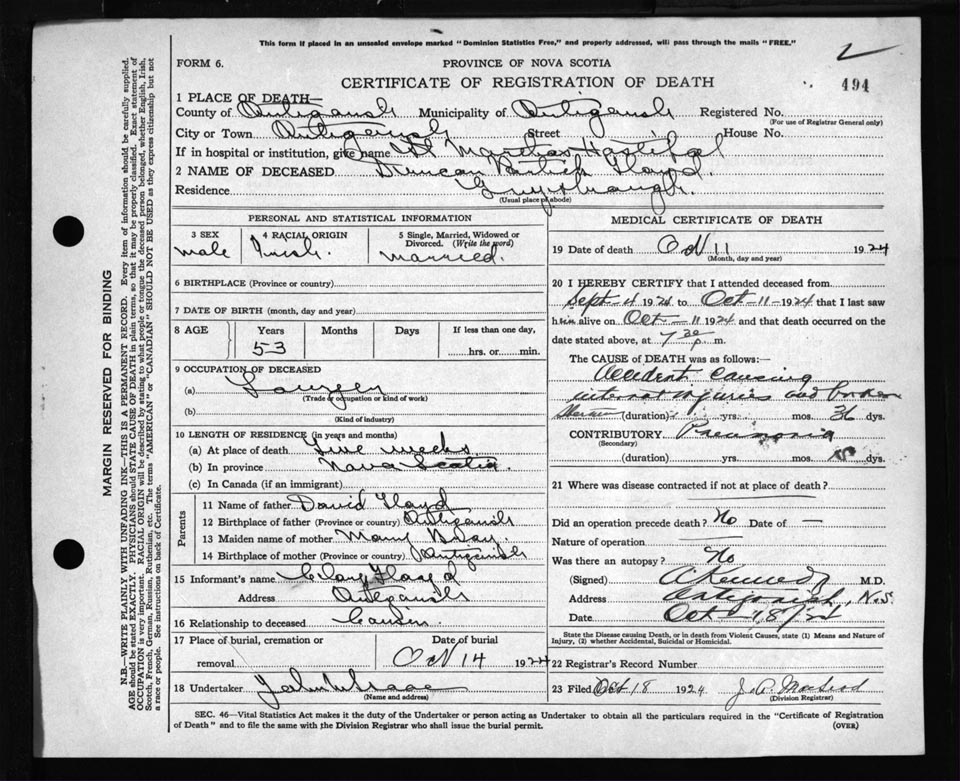 This form if placed in an unsealed envelope marked "Dominion Statistics Free," and properly addressed, will pass through the mails "FREE."
2
FORM 6.
PROVINCE OF NOVA SCOTIA
CERTIFICATE OF REGISTRATION OF DEATH
494
1 PLACE OF DEATH—
County of Antigonish Municipality of Antigonish Registered No.
(For use of Registrar General only)
City or Town Antigonish Street House No.
If in hospital or institution, give name St Marthas Hospital
2 NAME OF DECEASED Duncan Floyd.
Residence Guysboro
(Usual place of abode)
PERSONAL AND STATISTICAL INFORMATION
3 SEX 4 RACIAL ORIGIN 5 Single, Married, Widowed or Divorced. (Write the word)
male Irish. married.
6 BIRTHPLACE (Province or country)
7 DATE OF BIRTH (month, day and year)
8 AGE Years Months Days If less than one day,
53 hrs. or min.
9 OCCUPATION OF DECEASED
(a) Lawyer
(Trade or occupation or kind of work)
(b)
(Kind of industry)
10 LENGTH OF RESIDENCE (in years and months)
(a) At place of death Five weeks
(b) In province Nova Scotia.
(c) In Canada (if an immigrant)
Parents
11 Name of father David Floyd
12 Birthplace of father (Province or country) Antigonish
13 Maiden name of mother Mary
14 Birthplace of mother (Province or country) Antigonish
15 Informant's name Floyd
Address Antigonish
16 Relationship to deceased Cousin.
17 Place of burial, cremation or removal Date of burial
Oct 14 1924
18 Undertaker John
(Name and address)
MEDICAL CERTIFICATE OF DEATH
19 Date of death Oct 11 1924
(Month, day and year)
20 I HEREBY CERTIFY that I attended deceased from
Sept 4 1924 to Oct-11-1924 that I last saw
him alive on Oct-11 1924 and that death occurred on the
date stated above, at 7 30 p. m.
The CAUSE of DEATH was as follows:—
Accident causing
internal injuries and broken
(duration) yrs. mos. dys.
CONTRIBUTORY Pneumonia
(Secondary)
(duration) yrs. mos. dys.
21 Where was disease contracted if not at place of death?
Did an operation precede death? No Date of —
Nature of operation
Was there an autopsy? No
(Signed) Kennedy M.D.
Address Antigonish, N.S.
Date Oct 18/24
State the Disease causing Death, or in death from Violent Causes, state (1) Means and Nature of Injury, (2) whether Accidental, Suicidal or Homicidal.
22 Registrar's Record Number
23 Filed Oct 18 1924 J. A.
(Division Registrar)
SEC. 46—Vital Statistics Act makes it the duty of the Undertaker or person acting as Undertaker to obtain all the particulars required in the "Certificate of Registration
of Death" and to file the same with the Division Registrar who shall issue the burial permit.
(OVER)
MARGIN RESERVED FOR BINDING
N.B.—WRITE PLAINLY WITH UNFADING INK—THIS IS A PERMANENT RECORD. Every item of information should be carefully supplied.
AGE should be stated EXACTLY. PHYSICIANS should STATE CAUSE OF DEATH in plain terms, so that it may be properly classified. Exact statement of
OCCUPATION is very important. RACIAL ORIGIN will be described by stating to what people or tongue the deceased person belonged, whether English, Irish,
Scotch, French, German, Russian, Ruthenian, etc. The terms "AMERICAN" or "CANADIAN" SHOULD NOT BE USED as they express citizenship but not
a race or people. See instructions on back of Certificate.